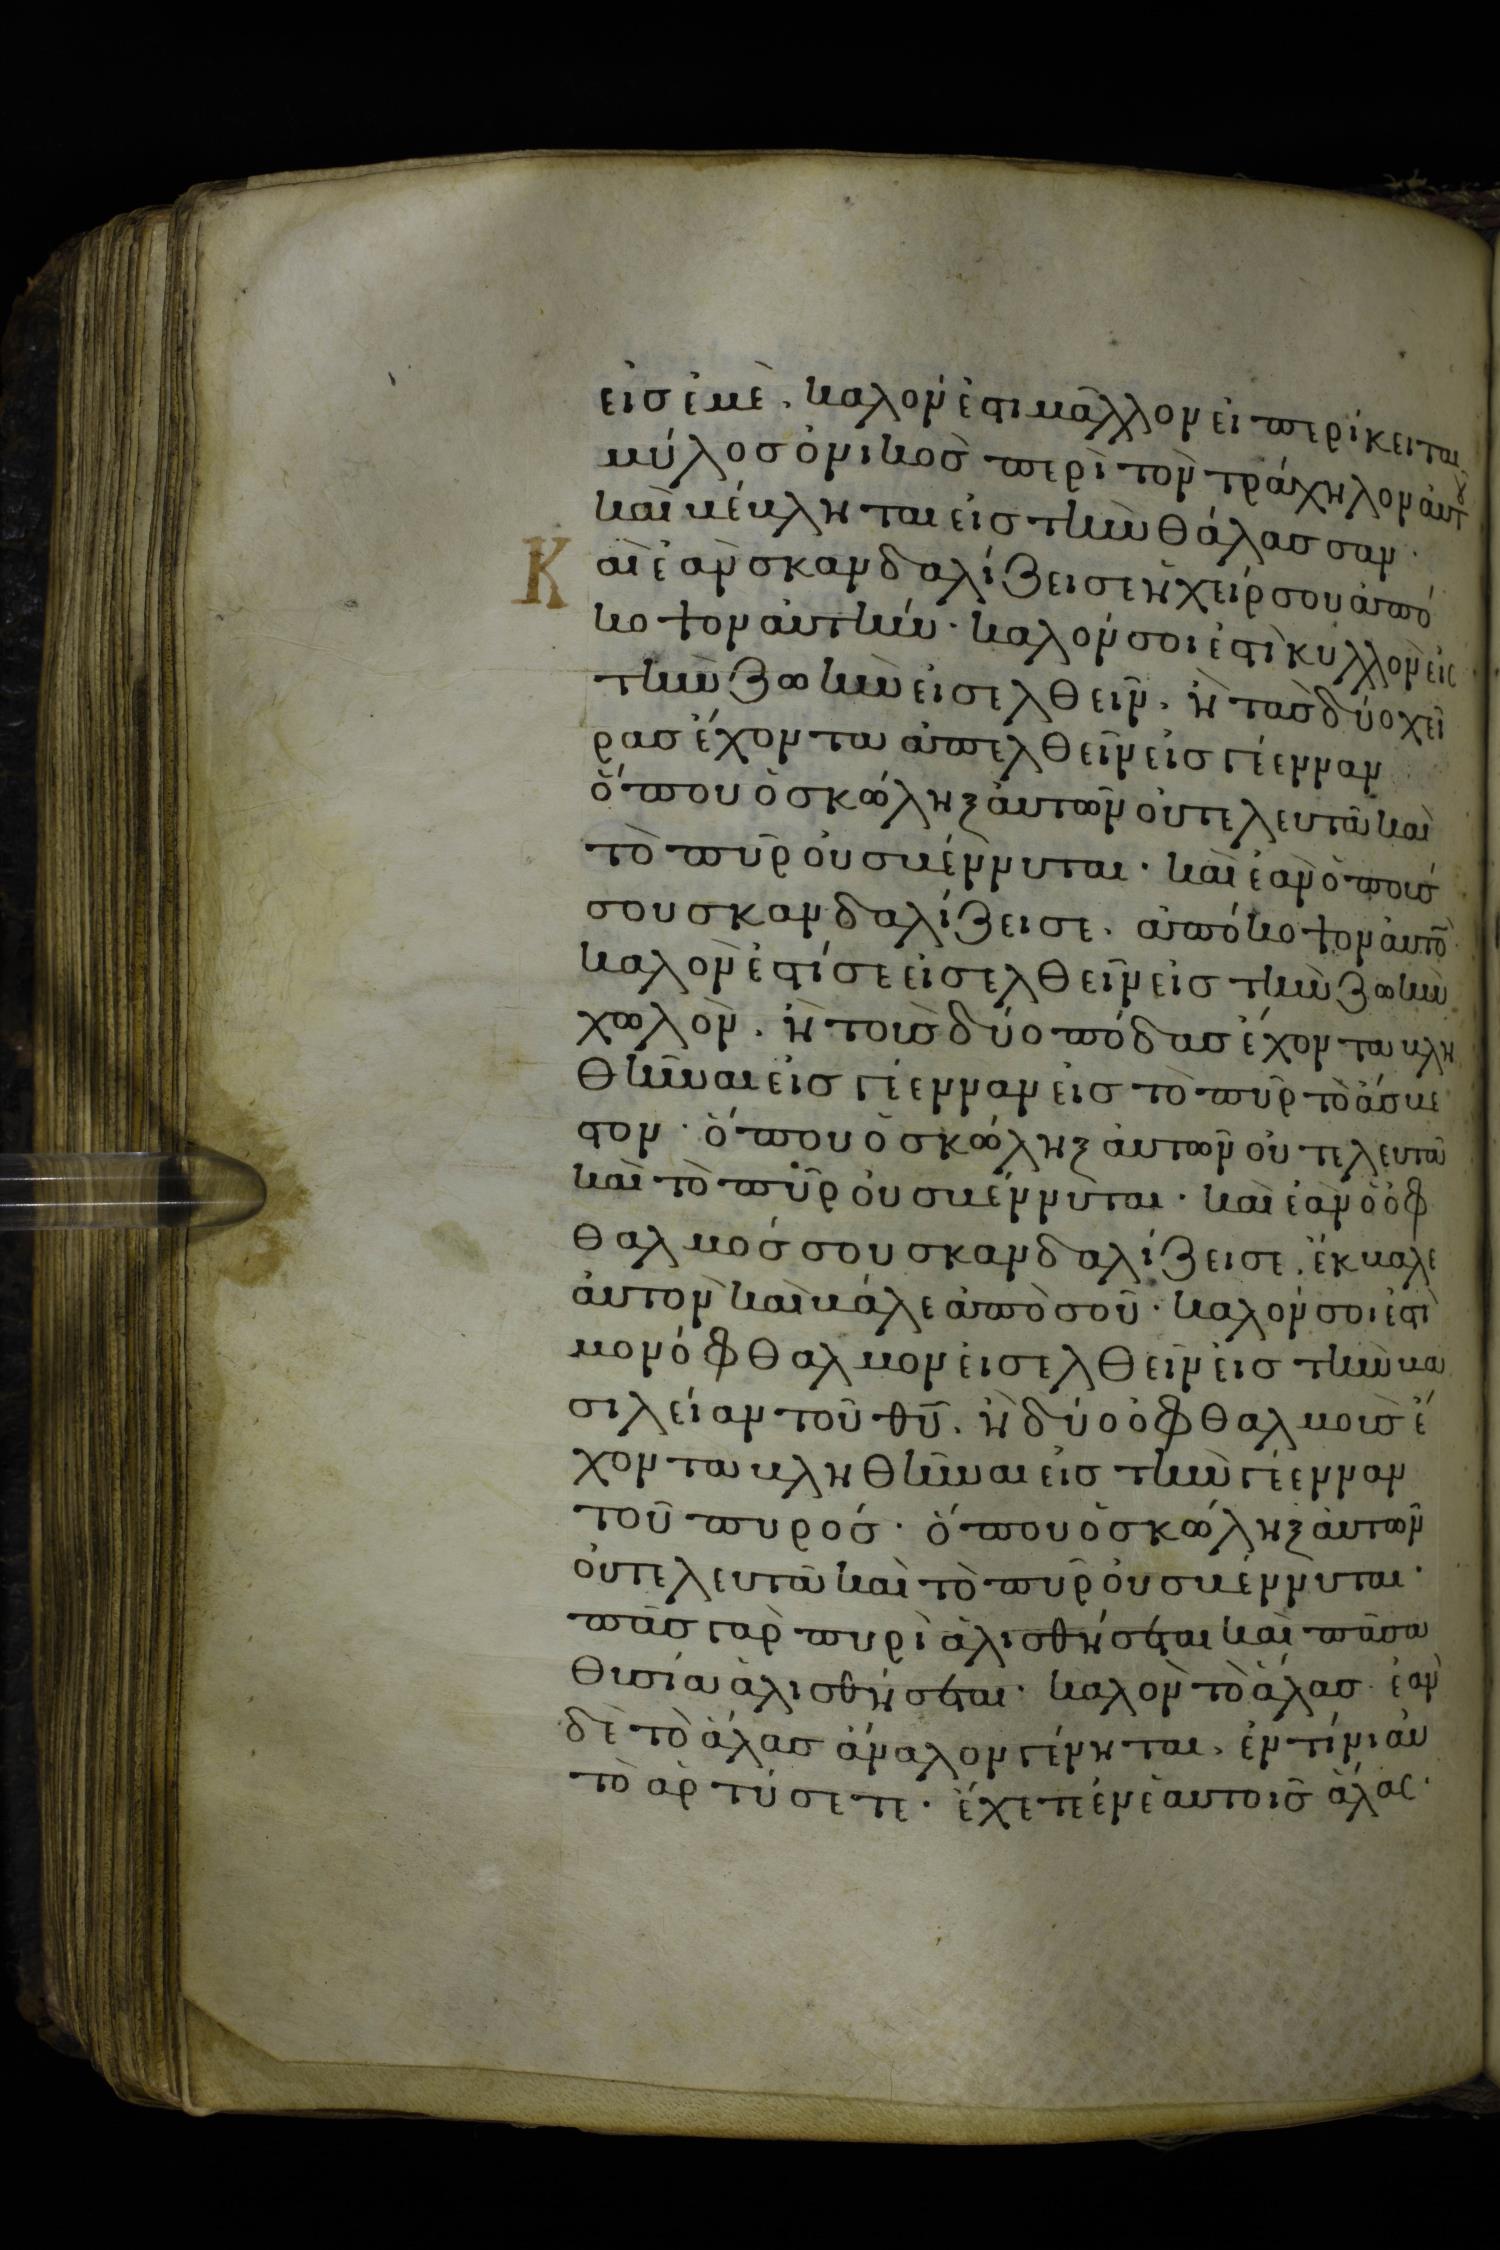 εἰσ ἐμὲ. καλὸν ἐστι μᾶλλον εἰ περίκειται
μύλοσ ὀνικὸσ περὶ τὸν τράχηλον ἀυτοῦ
καὶ βέβληται εἰσ τὴν θάλασσαν·
Καὶ ἐὰν σκανδαλίζει σε ἡ χείρ σου ἀπό
κοψον ἀυτήν· καλόν σοι ἐστὶ κυλλὸν εἰσ
τὴν ζωὴν εἰσελθεῖν. ἢ τὰσ δύο χεῖ
ρασ ἔχοντα ἀπελθεῖν εἰσ γέενναν
ὅπου ὁ σκώληξ ἀυτῶν ὀυ τελευτᾶ καὶ
τὸ πῦρ ὀυ σβέννυται· καὶ ἐὰν ὁ πούσ
σου σκανδαλίζει σε. ἀπόκοψον ἀυτὸν
καλὸν ἐστί σε εἰσελθεῖν εἰσ τὴν ζωὴν
χωλὸν. ἢ τοὺσ δύο πόδασ ἔχοντα βλη
θῆναι εἰσ γέενναν εἰσ τὸ πῦρ τὸ ἄσβε
στον· ὅπου ὁ σκώληξ ἀυτῶν ὀυ τελευτᾶ
καὶ τὸ πῦρ ὀυ σβέννυται· καὶ ἐὰν ὁ ὀφ
θαλμόσ σου σκανδαλίζει σε. ἔκβαλε
ἀυτὸν καὶ βάλε ἀπὸ σοῦ· καλόν σοι ἐστὶ
μονόφθαλμον εἰσελθεῖν εἰσ τὴν βα
σιλείαν τοῦ θυ. ἢ δύο ὀφθαλμοὺσ ἔ
χοντα βληθῆναι εἰσ τὴν γέενναν
τοῦ πυρόσ· ὅπου ὁ σκώληξ ἀυτῶν
ὀυ τελευτᾶ καὶ τὸ πῦρ ὀυ σβέννυται·
πᾶσ γὰρ πυρὶ ἁλισθήσεται καὶ πᾶσα
θυσία ἁλισθήσεται· καλὸν τὸ ἅλασ ἐὰν
δὲ τὸ ἅλασ ἄναλον γένηται. ἐν τίνι ἀυ
τὸ ἀρτύσετε· ἔχετε ἐν ἑαυτοῖσ ἅλασ·